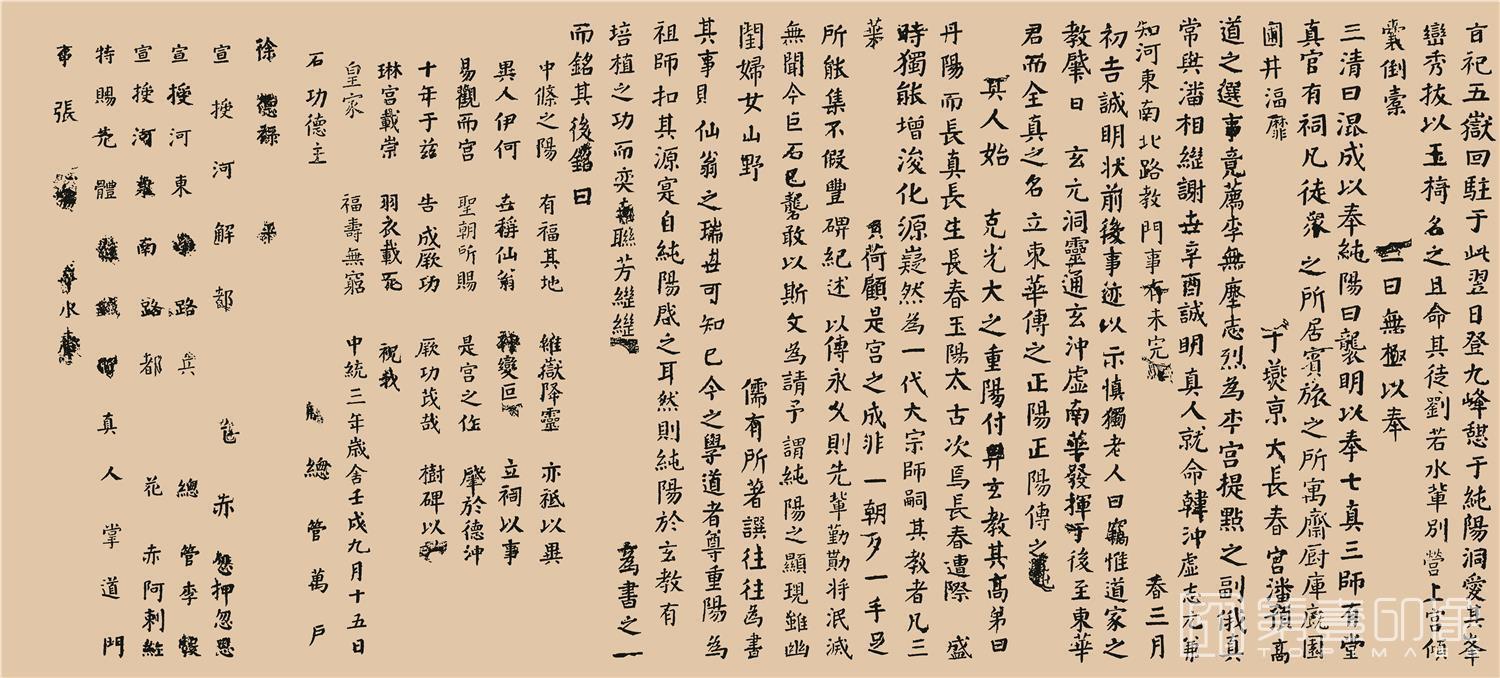 祀五嶽回駐于此翌日登九峰憩于純陽洞愛其峯
巒秀拔以玉椅名之且命其徒劉若水輩別營上宮傾
囊倒橐 一曰無極以奉
三清曰混成以奉純陽曰襲明以奉七真三師有堂
真官有祠凡徒衆之所居賓旅之所寓齋廚庫廐園
圃井湢靡 于燕京大長春宮潘積高
道之選事竟薦李無塵志烈為本宮提點之副俄真
常與潘相繼謝世辛酉誠明真人就命韓沖虛志元
知河東南北路教門事有未完 春三月
初吉誠明狀前後事迹以示慎獨老人曰竊惟道家之
教肇日 玄元洞靈通玄沖虛南華發揮于後至東華
君而全真之名立東華傳之正陽正陽傳之
其人始 克光大之重陽付畀玄教其高弟曰
丹陽而長真長生長春玉陽太古次焉長春遭際 盛
時獨能增浚化源嶷然為一代大宗師嗣其教者凡三
葉 荷顧是宮之成非一朝夕一手足
所能集不假豐碑紀述以傳永久則先輩勤勤將泯滅
無聞今巨石已礱敢以斯文為請予謂純陽之顯現雖幽
閨婦女山野 儒有所著譔往往為書
其事見仙翁之瑞世可知已今之學道者尊重陽為
祖師扣其源寔自純陽啓之耳然則純陽於玄教有
培植之功而奕 聯芳繼 為書之一
而銘其後銘曰
中條之陽 有福其地 維嶽降靈 亦祗以異
異人伊何 世稱仙翁 神變 立祠以事
易觀而宮 聖朝所賜 是宮之作 肇於德沖
十年于兹 告成厥功 厥功茂哉 樹碑以
琳宮載崇 羽衣載 祝我
皇家 福壽無窮 中統三年歲舍壬戌九月十五日
石功德主 總管萬戶
徐德祿
宣授河解都 赤 忽押忽思
宣授河東 路兵 總管李
宣授河東南路都 花赤阿剌
特賜 體 真人掌道門
張
筑書印象
TOPSMATE